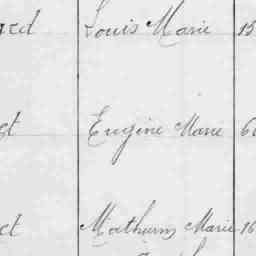 Louis Marie 15
Eugène Marie 6
Mathurin Marie 16